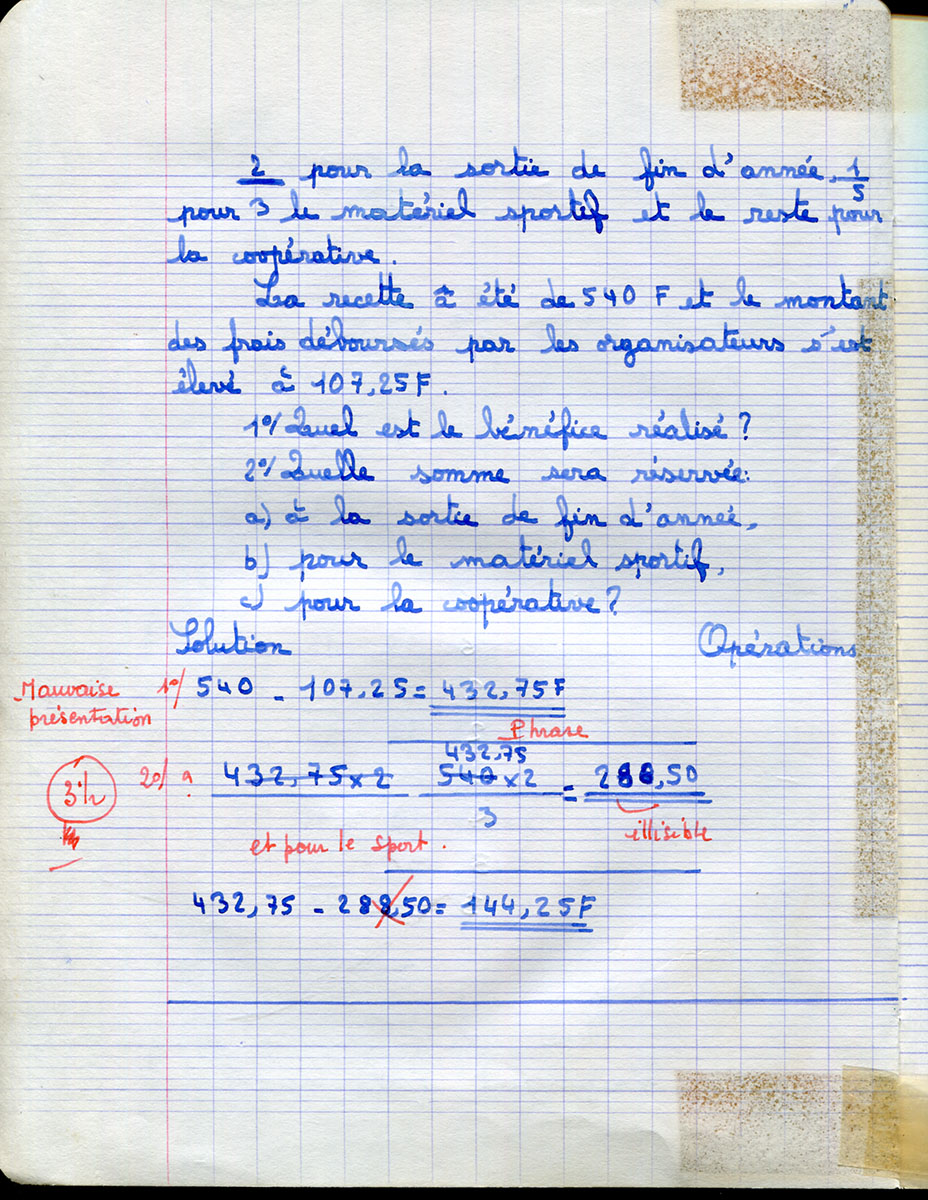 2 pour la sortie de fin d'année, 1
5
pour 3 le matériel sportif et le reste pour
la coopérative.
La recette à été de 540 F et le montant
des frais déboursés par les organisateurs s'est
élevé à 107,25 F.
1°/ Quel est le bénéfice réalisé ?
2°/ Quelle somme sera réservée:
a) à la sortie de fin d'année,
b) pour le matériel sportif,
c) pour la coopérative ?
Solution Opérations
Mauvaise présentation
1°/ 540 - 107,25 = 432,75F
Phrase
432,75
2°/ a 432,75 x 2 540 x 2 = 288,50
3
3 1/2
illisible
et pour le sport.
432,75 - 288,50 = 144,25F